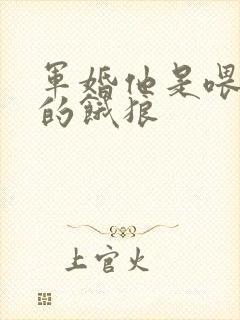 軍婚他是喂
的餓狼
上官火